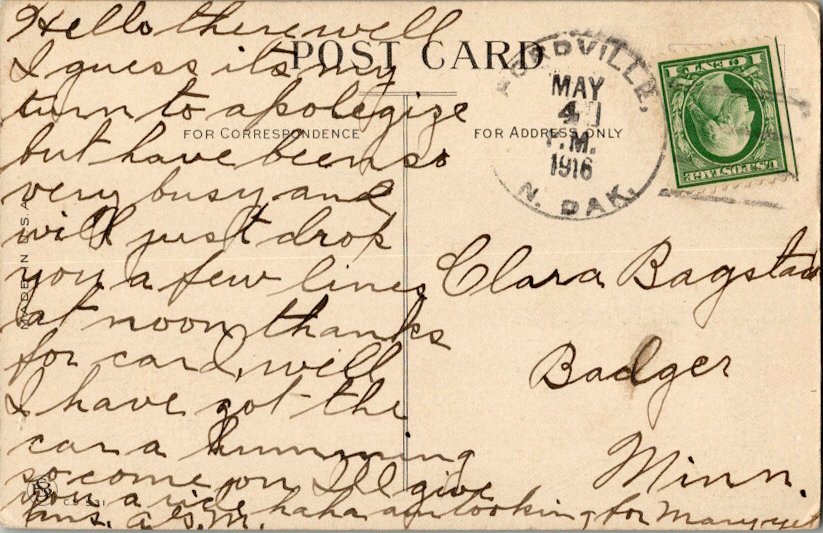 POST CARD
FOR CORRESPONDENCE
FOR ADDRESS ONLY
MADE IN U.S.A.
Hello there well
I guess its my
turn to apolegize
but have been so
very busy and
will just drop
you a few lines
at noon, thanks
for card, well
I have got the
car a humming
so come on I'll give
you a ride haha am looking for Mary yet
ans. A.S.M.
C.S. 531
MAY
4
P.M.
1916
N. DAK.
1 CENT 1
U.S. POSTAGE
Clara Bagstad
Badger
Minn.